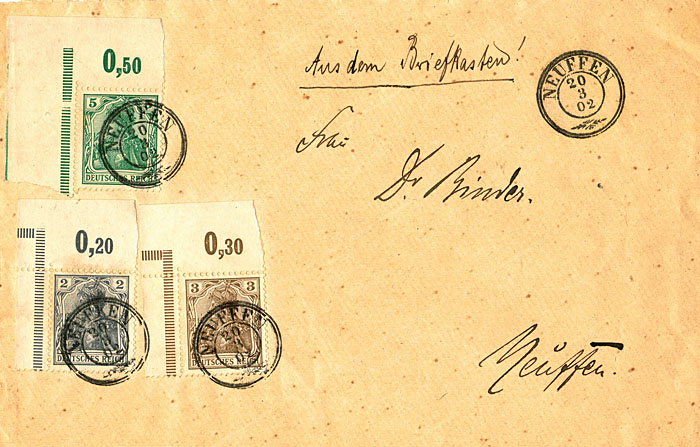 0,50
Aus dem Briefkasten!
NEUFFEN
20
3
02
5
NEUFFEN
20
3
02
DEUTSCHES REICH
Frau
Dr. Binder.
0,20
0,30
2 2
NEUFFEN
20
3
02
DEUTSCHES REICH
3 3
NEUFFEN
20
3
02
DEUTSCHES REICH
Neuffen.